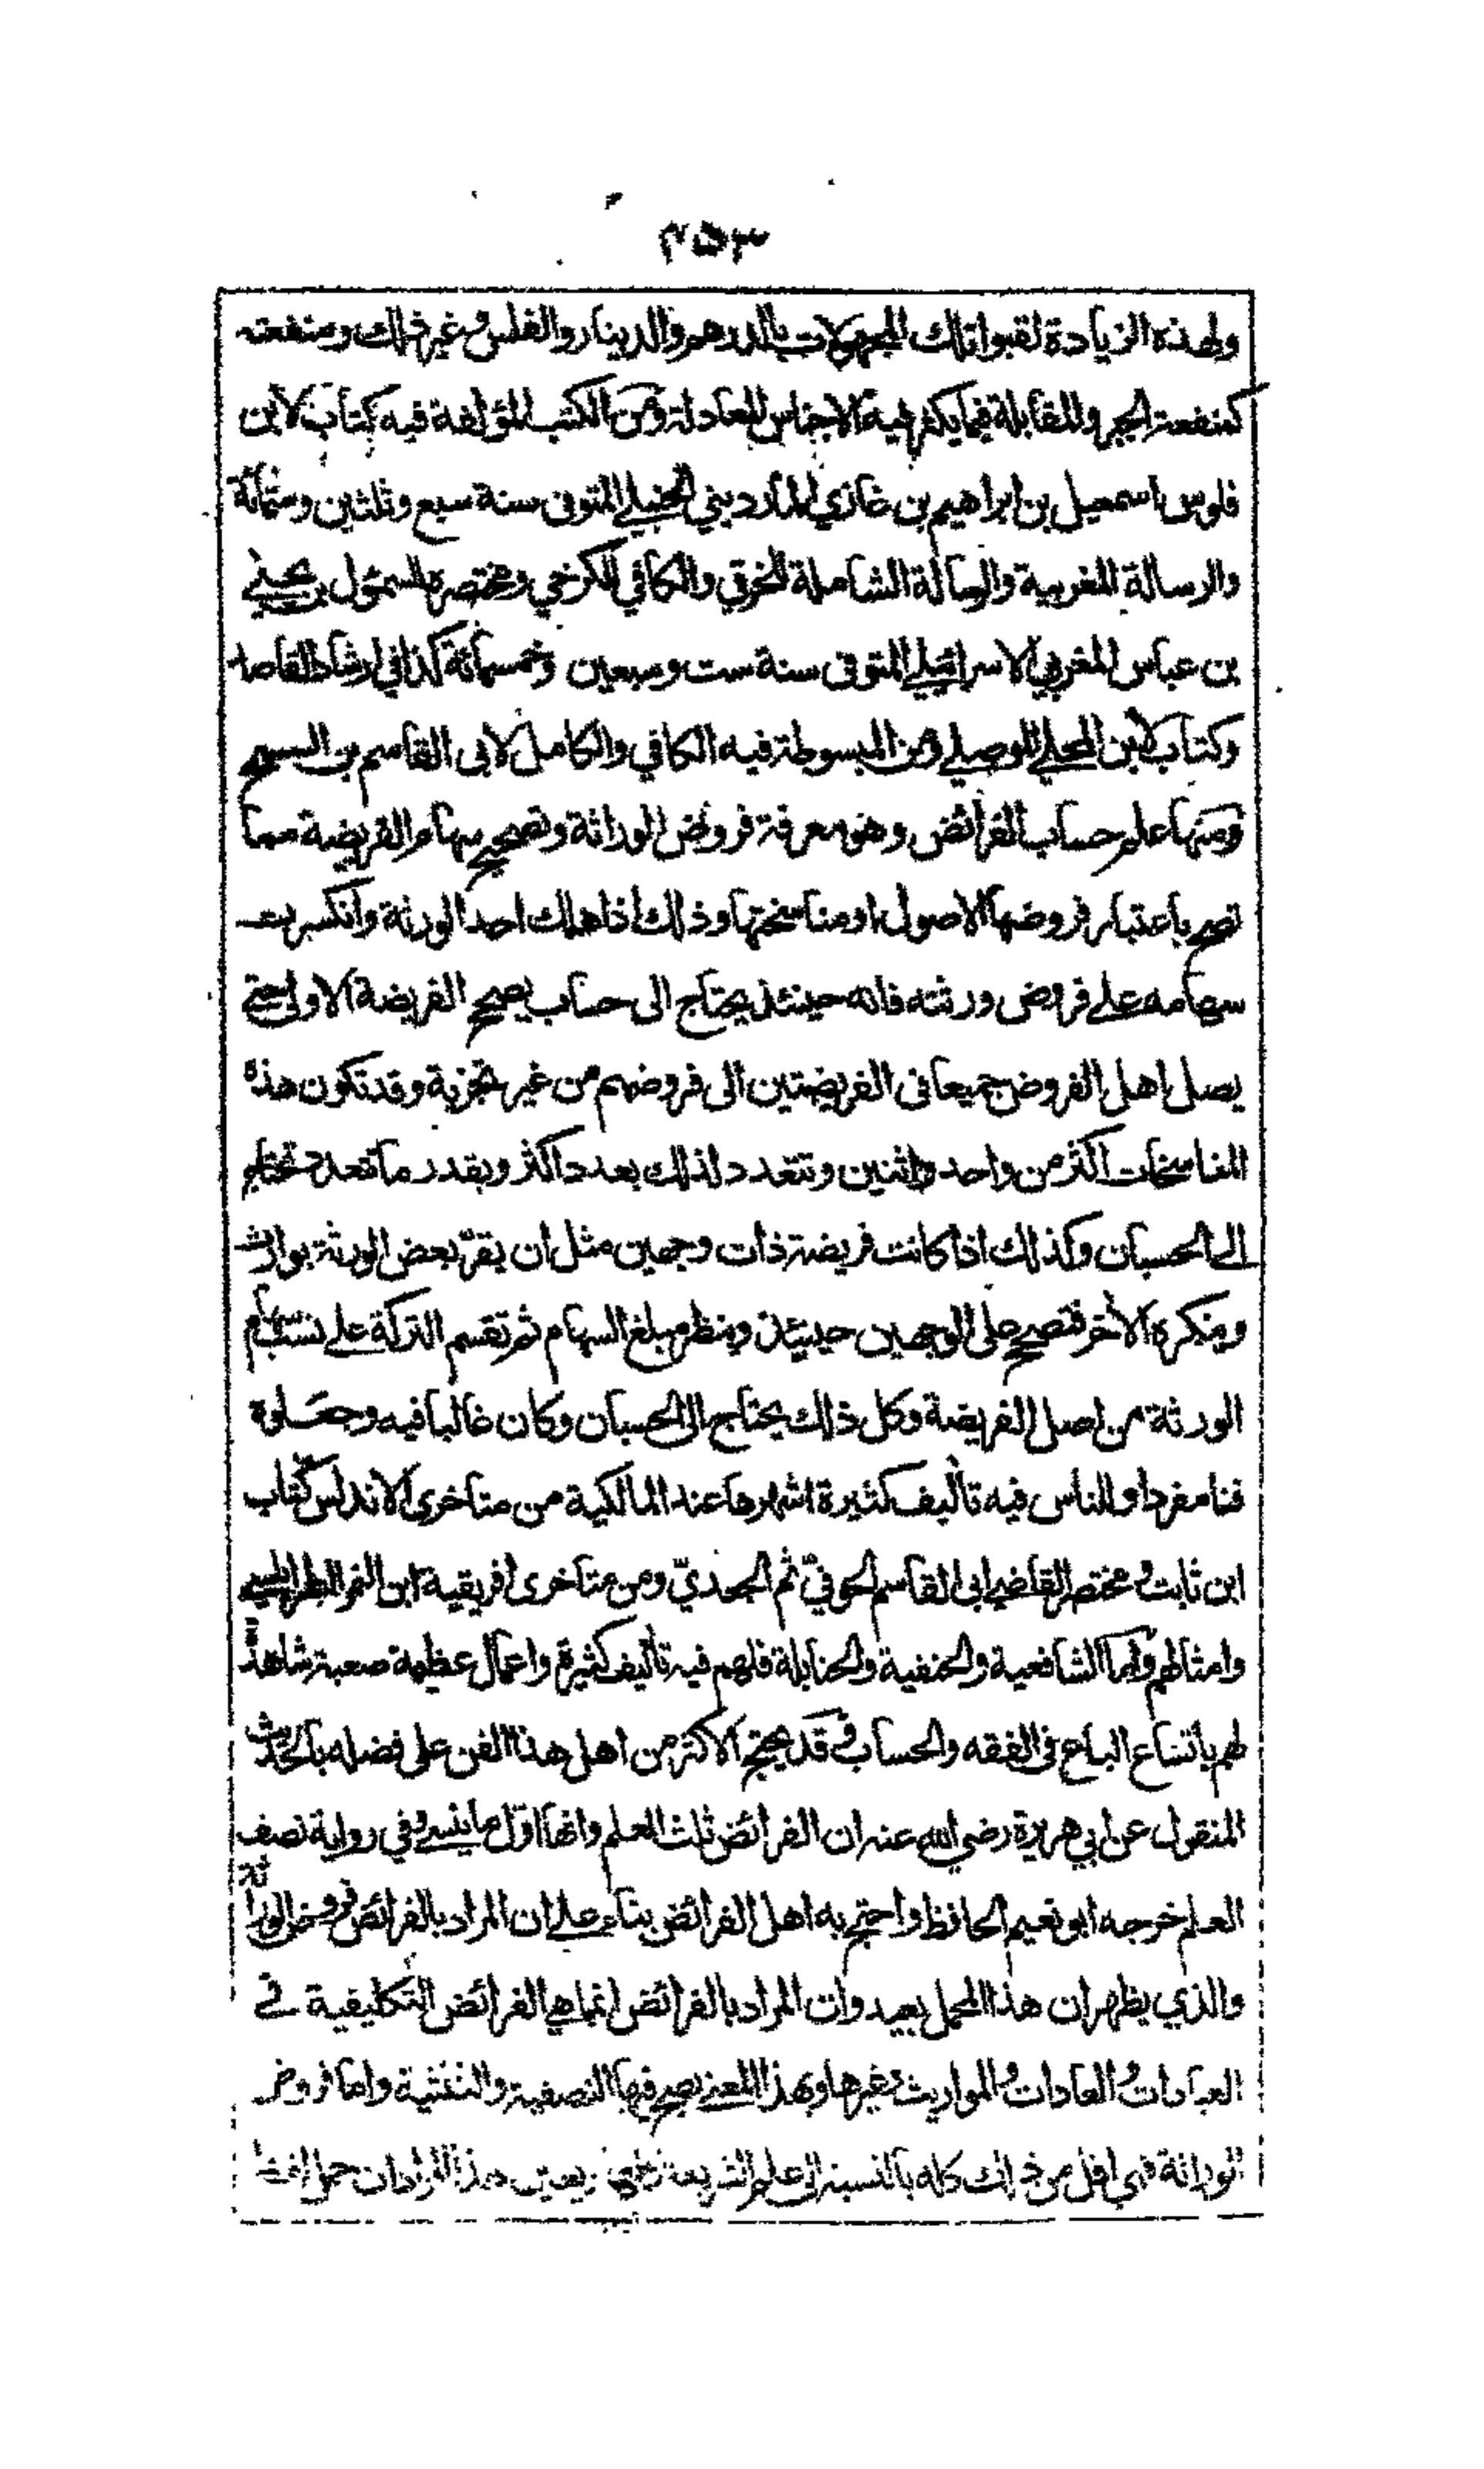 ٢٥٣
ولهذه الزيادة لقبوا تلك المجهولات بالدرهم والدينار والفلس وغير ذلك ومنفعته
كمنفعة الجبر والمقابلة فيما يكثر فيه الاجناس المعادلة ومن الكتب المؤلفة فيه كتاب لابن
فلوس اسمعيل بن ابراهيم بن غازي المارديني الحنبلي المتوفى سنة سبع وثلثين وستمائة
والرسالة المغربية والرسالة الشاملة للخرقي والكافي للكرخي ومختصره للسمئول بن يحيى
بن عباس المغربي الاسرائيلي المتوفى سنة ست وسبعين وخمسمائة كذا في ارشاد القاصد
وكتاب لابن المحلي الموصلي ومن المبسوطة فيه الكافي والكامل لابى القاسم بن السمح
ومنها علم حساب الفرائض وهو معرفة فروض الوراثة وتصحيح سهام الفريضة مما
تصح باعتبار فروضها الاصول او مناسختها وذلك اذا هلك احد الورثة وانكسرت
سهامه على فروض ورثته فانه حينئذ يحتاج الى حساب يصحح الفريضة الاولى حتى
يصل اهل الفروض جميعا فى الفريضتين الى فروضهم من غير تجزية وقد تكون هذه
المناسخات اكثر من واحد واثنين وتتعدد لذلك بعدد اكثر وبقدر ما تعدد تحتاج
الى الحسبان وكذلك اذا كانت فريضة ذات وجهين مثل ان يقر بعض الورثة بوارث
وينكره الأخر فتصحح على الوجهين حينئذ وينظر مبلغ السهام ثم تقسم التركة على نسب سهام
الورثة من اصل الفريضة وكل ذلك يحتاج الى الحسبان وكان غالبا فيه وجعلوه
فنا مفردا وللناس فيه تأليف كثيرة اشهرها عند المالكية من متاخرى الاندلس كتاب
ابن ثابت ومختصر القاضي ابى القاسم الحوفيّ ثم الجعديّ ومن متاخرى افريقية ابن النمر الطرابلسي
وامثالهم واما الشافعية والحنفية والحنابلة فلهم فيه تأليف كثيرة واعمال عظيمة صعبة شاهدة
لهم باتساع الباع فى الفقه والحساب وقد يحتج الاكثر من اهل هذا الفن على فضله بالحديث
المنقول عن ابي هريرة رضي الله عنه ان الفرائض ثلث العلم وانها اوّل ما ينسى وفي رواية نصف
العلم خرجه ابو نعيم الحافظ واحتج به اهل الفرائض بناء على ان المراد بالفرائض فروض الوراثة
والذي يظهر ان هذا المحمل بعيد وان المراد بالفرائض انما هي الفرائض التكليفية في
العبادات والعادات والمواريث وغيرها وبهذا المعنى يصح فيها النصفية والثلثية واما فروض
الوراثة فهي اقل من ذلك كله بالنسبة الى علم الشريعة كلها يعين هذا المراد ان حمل لفظ